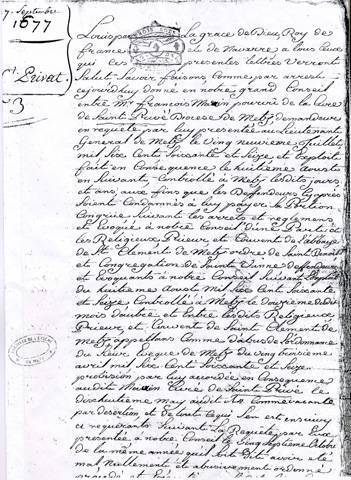 7. Septembre
1677
St Privat.
3
Louis par la grace de Dieu Roy de
france et de Navarre a tous ceux
qui ces presentes lettres Verront
Salut Savoir faisons Comme par arrest
cejourdhuy donné en notre grand Conseil
entre Me francois pourvû de la Cure
de Saint Privé Diocese de Metz demandeur
en requete par luy presentée au Lieutenant
General de Metz le Vingt neuvieme Juillet
mil six Cent Soixante et Seize et Exploit
fait en Consequence le huitieme Aoust
Suivant Controllé a Metz lesdits jours
et ans, aux fins que les Deffendeurs Cy après
soient Condamnés a luy payer la Portion
Congrue suivant les arrets et reglemens
et Evoqué à notre Conseil d'une Part et
les Religieux Prieur et Couvent de l'abbaye
de St Clement de Metz ordre de Saint Benoist
et Congregation de Saint Vanne deffendeurs
et Evoquants à notre Conseil Suivant
du huitieme Aoust mil six Cent Soixante
et Seize Controllé à Metz le Douzieme dudit
mois d'autre et Entre lesdits Religieux
Prieur et Couvent de Saint Clement de
Metz appellans Comme d'abus de l'ordonnance
du Sieur Eveque de Metz du Vingt troisieme
avril mil six Cent Soixante et Seize
provision par luy accordée en Consequence
audit Curée de Saint Privé le
dixhuitieme may audit an Commeivante
par desertion et de tout ce qui s'en est ensuivy
et requerants suivant la Requete par Eux
presentée à notre Conseil le Cinq Septieme octobre
de la même année qu'il soit dit avoir été
mal Nullement et abusivement ordonné